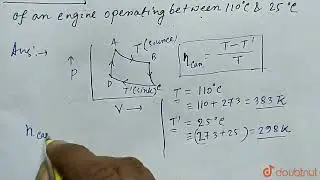 of an engine operating between 110°C & 25°C
Ans:→
A T(source)
B
P
D
T'(sink) C
V →
η_can = T - T' / T
T = 110°C
= 110 + 273 = 383 K
T' = 25°C
= (273+25) = 298 K
η_can
doubtnut